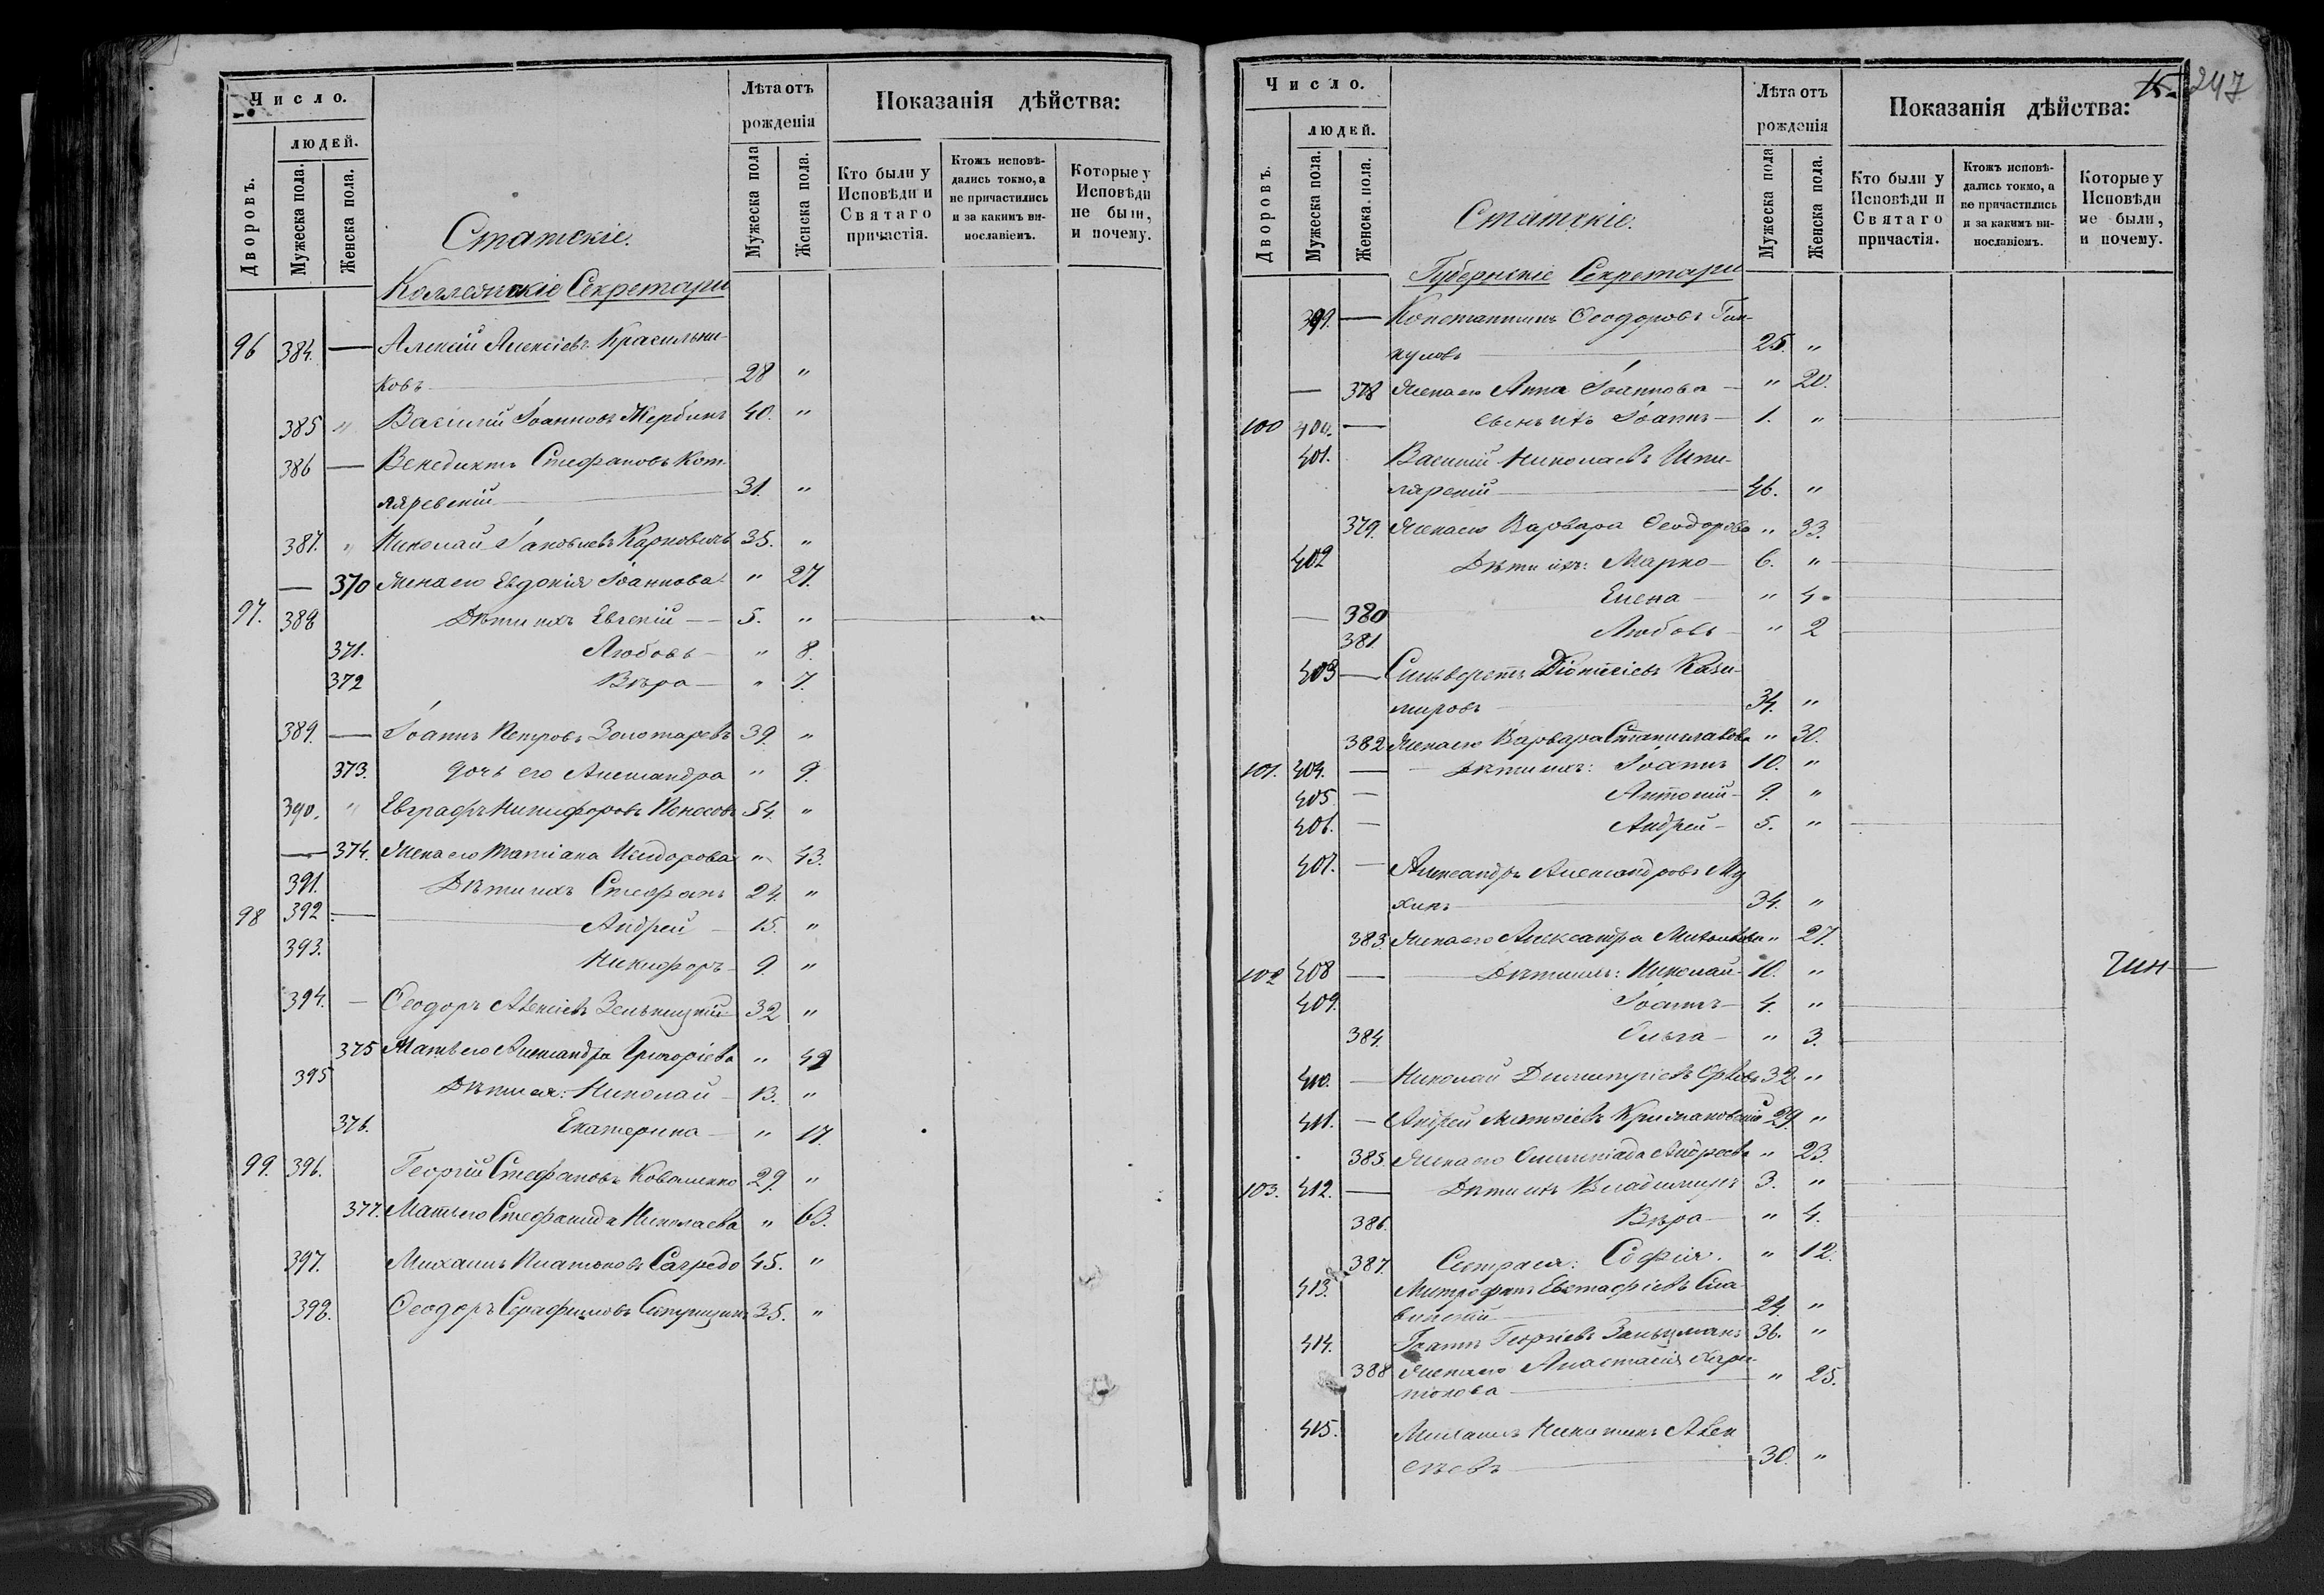 Число.
людей.
Дворовъ.
Мужеска пола.
Женска пола.
Статскіе.
Коллежскіе Секретари
Лѣта отъ рожденія
Мужеска пола
Женска пола.
Показанія дѣйства:
Кто были у Исповѣди и Святаго причастія.
Ктожъ исповѣ-
дались токмо, а
не причастились
и за какимъ ви-
нославіемъ.
Которые у
Исповѣди
не были,
и почему.
96 384. — Алексій Алексіевъ Красильни-
ковъ 28 "
385 " Василій Іоанновъ Жербинъ 40. "
386 — Венедиктъ Стефановъ Кот-
ляревскій 31. "
387. " Николай Іаковлевъ Карповичъ 35. "
— 370 Жена его Евдокія Іоаннова " 27.
97. 388 Дѣти ихъ Евгеній 5. "
371. Любовь " 8.
372 Вѣра " 7.
389. — Іоаннъ Петровъ Золотаревъ 39. "
373. дочь его Александра " 9.
390. " Евграфъ Никифоровъ 54. "
— 374. Жена его Татіана Исидорова " 43.
391. Дѣти ихъ Стефанъ 24. "
98 392. — Андрей 15. "
393. Никифоръ 9. "
394. — Ѳеодоръ Алексіевъ 32 "
375 Мать его Александра Григоріева " 49
395 Дѣти ея: Николай 13. "
376. Екатерина " 17.
99. 396. Георгій Стефановъ Коваленко 29. "
377. Мать его Стефанида Николаева " 63.
397. Михаилъ Платоновъ Сагредо 45. "
398. Ѳеодоръ Серафимовъ 35. "
247
Число.
людей.
Дворовъ.
Мужеска пола.
Женска. пола.
Статскіе.
Губернскіе Секретари
Лѣта отъ рожденія
Мужеска пола
Женска пола.
Показанія дѣйства:
Кто были у Исповѣди и Святаго причастія.
Ктожъ исповѣ-
дались токмо, а
не причастились
и за какимъ ви-
нославіемъ.
Которые у
Исповѣди
не были,
и почему.
399. — Константинъ Ѳеодоровъ Гин-
куловъ 25. "
— 378 Жена его Анна Іоаннова " 20.
100 400. — Сынъ ихъ Іоаннъ 1. "
401. Василій Николаевъ
46. "
379. Жена его Варвара Ѳеодорова " 33.
402 Дѣти ихъ: Марко 6. "
— 380 Елена " 4.
381. Любовь " 2
403 — Сильверстъ Діонисіевъ Кази-
мировъ 34. "
382 Жена его Варвара Станиславова " 30.
101. 404. — Дѣти ихъ: Іоаннъ 10. "
405. — Антоній 9. "
406. — Андрей 5. "
407. — Александръ Александровъ Му
хинъ 34. "
383. Жена его Александра " 27.
102 408 — Дѣти ихъ: Николай 10. "
409. Іоаннъ 4. "
384. Ольга " 3.
410. — Николай Димитріевъ Орловъ 32 "
411. — Андрей Матѳіевъ 29. "
385. Жена его Олимпіада Андреева " 23.
103. 412. — Дѣти ихъ Владимиръ 3. "
386. Вѣра " 4.
387. Сестра ея: Софія. " 12.
413. Митрофанъ Евстафіевъ Сла-
винскій 24. "
414. Іоаннъ Георгіевъ Зальцманъ 36. "
388 Жена его Анастасія Хари-
тонова " 25.
415. Михаилъ Никитинъ Алек
сѣевъ 30. "